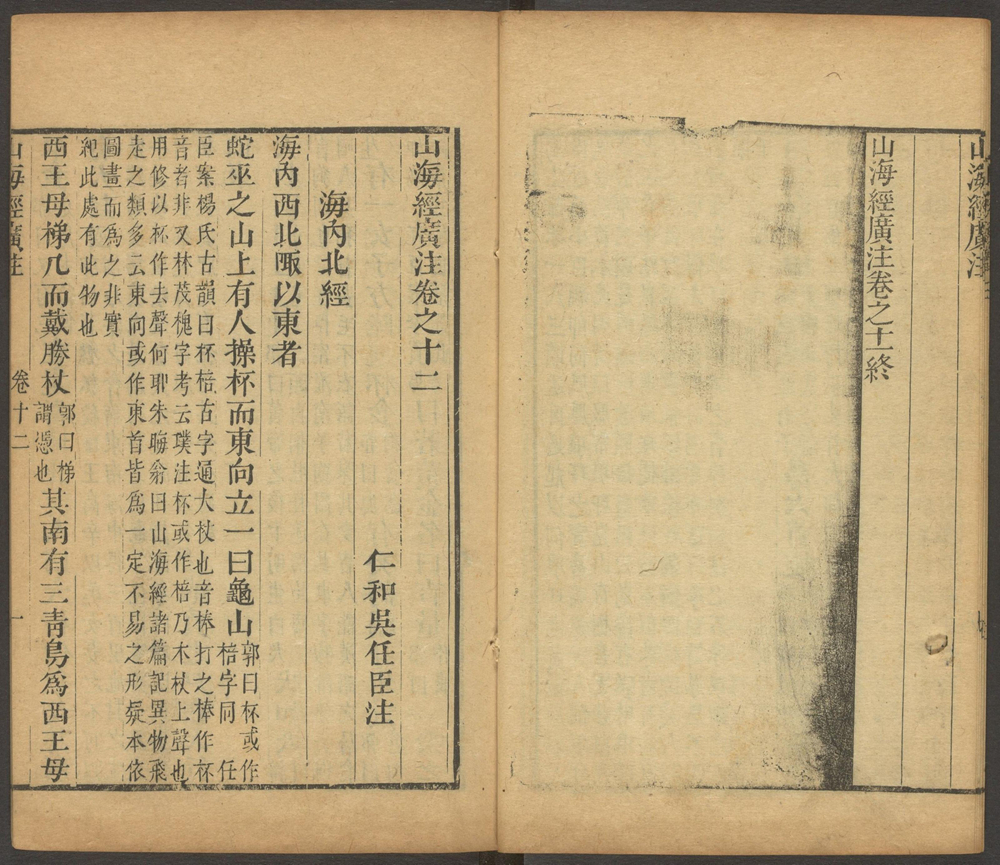 山海經廣注
山海經廣注卷之十一終
山海經廣注卷之十二
仁和吳任臣注
海內北經
海內西北陬以東者
蛇巫之山上有人操杯而東向立一曰龜山郭曰杯或作
棓字同 任
臣案楊氏古韻曰杯棓古字通大杖也音棒打之棒作杯
音者非又林茂槐字考云璞注杯或作棓乃木杖上聲也
用修以杯作去聲何耶朱晦翁曰山海經諸篇記異物飛
走之類多云東向或作東首皆爲一定不易之形疑本依
圖畫而爲之非實
紀此處有此物也
西王母梯几而戴勝杖郭曰梯
謂憑也其南有三青鳥爲西王母
山海經廣注 卷十二 一